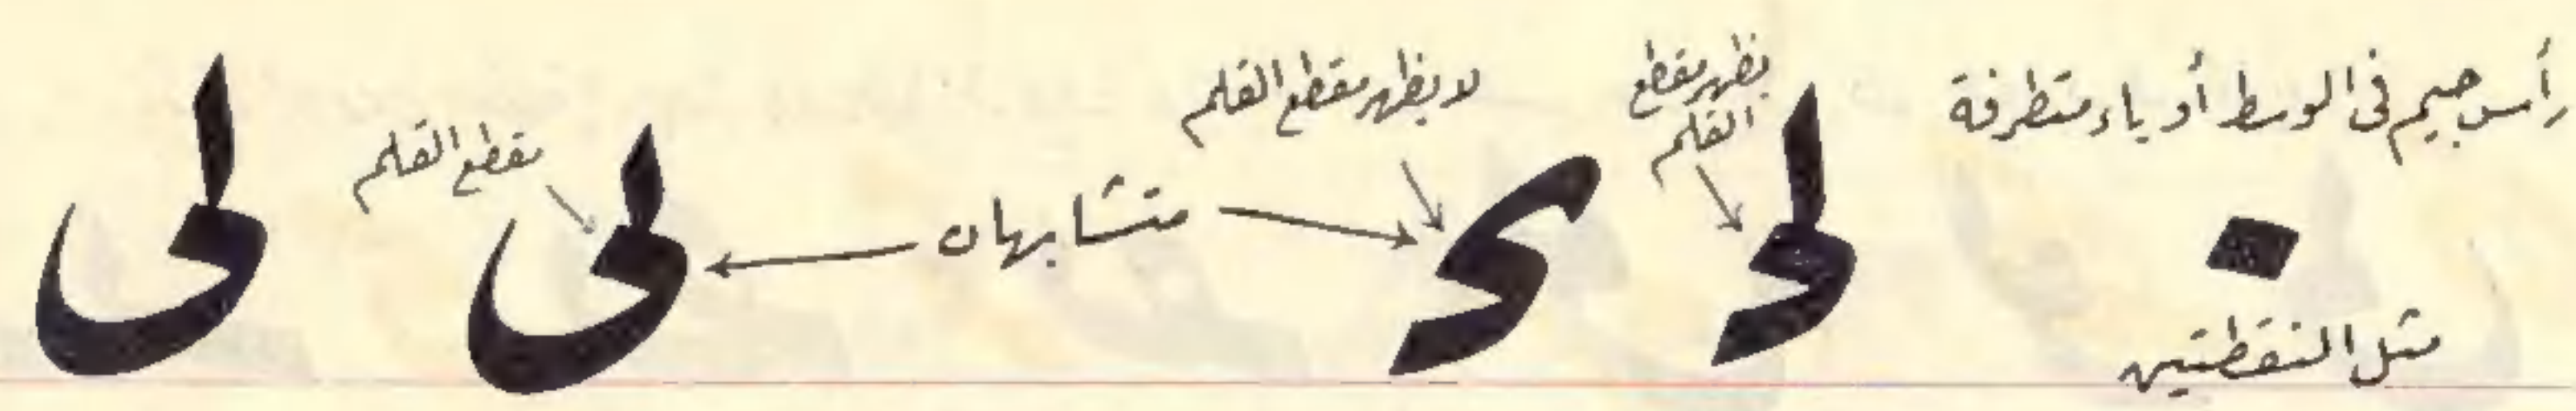 رأس جيم فى الوسط أو ياء متطرفة
مثل النقطتين
يظهر مقطع
القلم
لا يظهر مقطع القلم
متشابهان
مقطع القلم
لى
لى